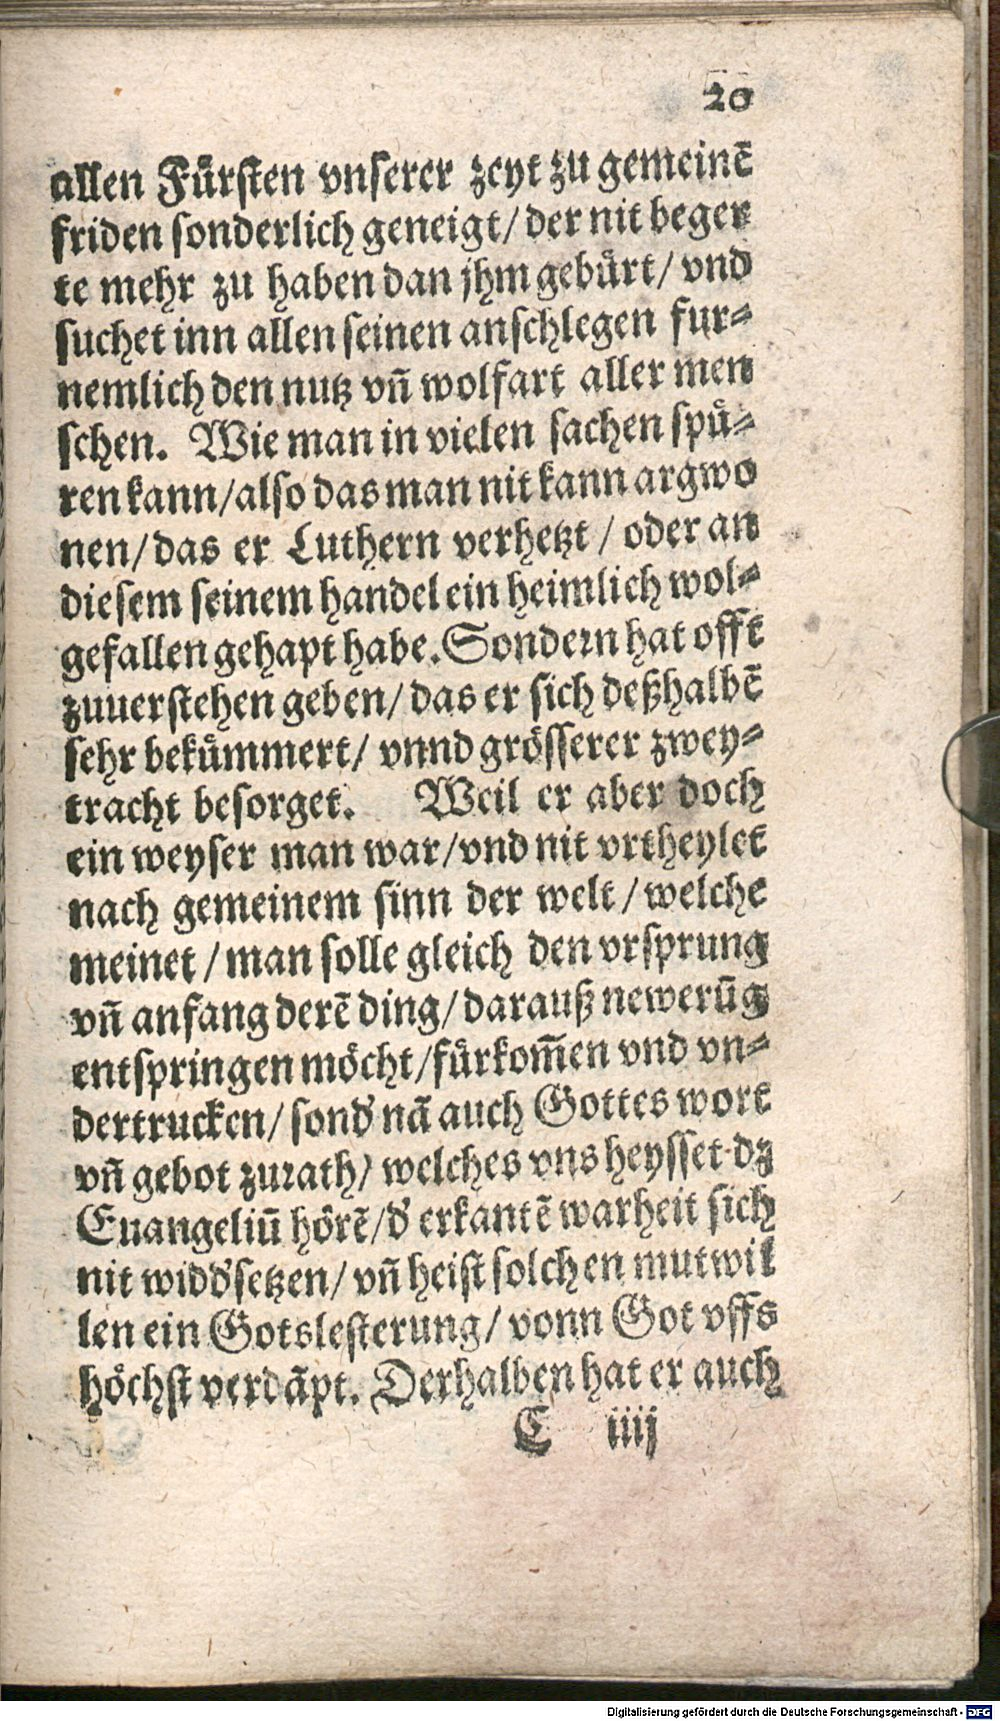 20
allen Fürsten vnserer zeyt zu gemeinē
friden sonderlich geneigt/ der nit beger
te mehr zu haben dan jhm gebürt/ vnd
suchet inn allen seinen anschlegen fur⸗
nemlich den nutz vn̄ wolfart aller men
schen. Wie man in vielen sachen spü⸗
ren kann/also das man nit kann argwo
nen/das er Luthern verhetzt / oder an
diesem seinem handel ein heimlich wol⸗
gefallen gehapt habe. Sondern hat offt
zuuerstehen geben/ das er sich deßhalbē
sehr bekümmert/ vnnd grösserer zwey⸗
tracht besorget. Weil er aber doch
ein weyser man war/vnd nit vrtheylet
nach gemeinem sinn der welt / welche
meinet / man solle gleich den vrsprung
vn̄ anfang derē ding/ darauß newerūg
entspringen möcht/fürkom̄en vnd vn⸗
dertrucken/ sond' nā auch Gottes wort
vn̄ gebot zurath/ welches vns heysset dz
Euangeliū hörē/d' erkantē warheit sich
nit widd'setzen/ vn̄ heist solchen mutwil
len ein Gotslesterung/ vonn Got vffs
höchst verdāpt. Derhalben hat er auch
C iiij
Digitalisierung gefördert durch die Deutsche Forschungsgemeinschaft - DFG